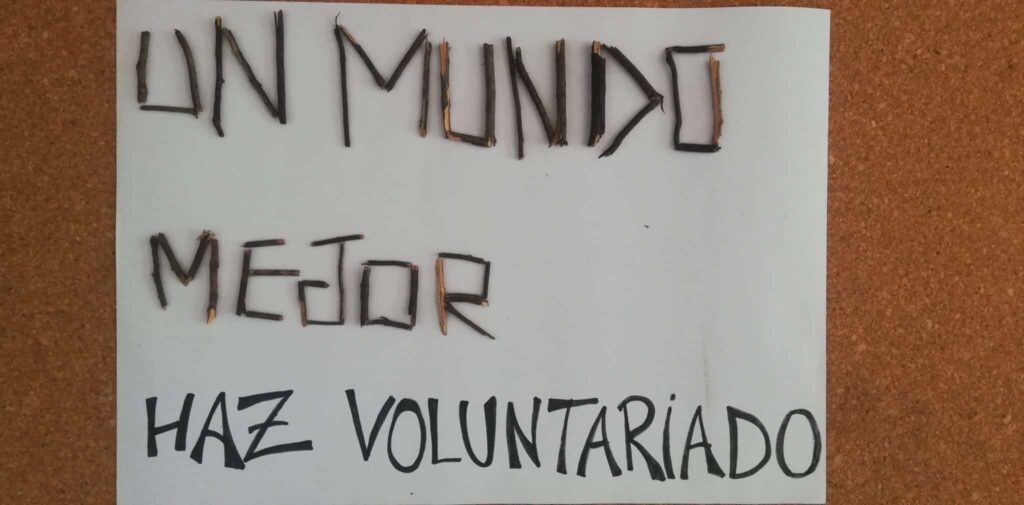 UN MUNDO
MEJOR
HAZ VOLUNTARiADO